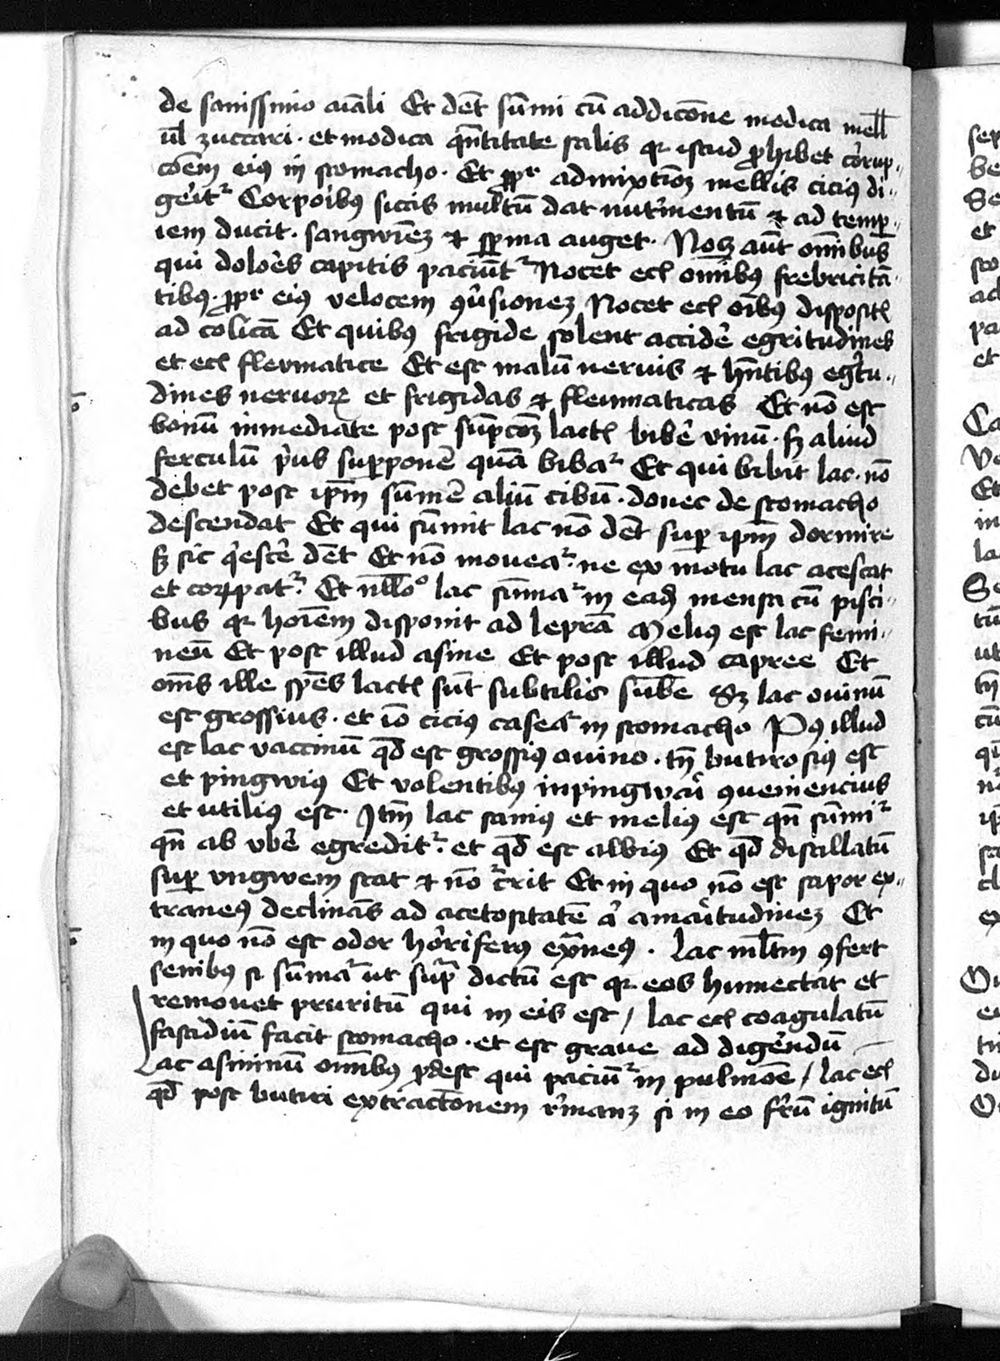 de sanissimo aīali Et dēt sūmi cū addicōne modica mell
ul̄ zuccari · et modica qn̄titate salis qr istud ꝓhibet corrup-
cōem eiꝰ in stomacho · Et ꝓpt admixtiōꝫ mellis ciciꝰ di-
gerit᷑ Corporibꝰ siccis multū dat nutrimentū ⁊ ad temper-
iem ducit · sangwinēꝫ ⁊ sperma auget · Nocꝫ aūt omnibus
qui dolores capitis paciunt᷑ Nocet ecī omnibꝰ febricitā-
tibꝰ · ꝓpt eiꝰ velocem ꝯūsionēꝫ Nocet ecī oībus disposit
ad colicā Et quibꝰ frigide solent accidē egritudines
et ecī fleumatice Et est malū neruis ⁊ hn̄tibus egritu-
dines neruoꝝ et frigidas ⁊ fleumaticas Et nō est
bonū inmediate post sūpcōꝫ lact bibē vinū · sꝫ aliud
ferculū prius supponē quā bibat᷑ Et qui bibit lac · nō
debet post ip̄m sūmē aliū cibū · donec de stomacho
descendat Et qui sūmit lac nō dēt super ip̄m dormire
sꝫ sic qescē dēt Et nō moueat᷑ ne ex motu lac acescat
et corrūpat᷑ · Et nllō lac sūmat᷑ in eadē mensa cū pisci-
bus qr hoīem disponit ad leprā Meliꝰ est lac femi-
neū Et post illud asine Et post illud capree Et
om̄s ille sp̄es lact sūt subtilis sūbē Sꝫ lac ouinū
est grossius · et iō ciciꝰ caseat᷑ in stomacho Pꝰ illud
est lac vaccinū qd est grossiꝰ ouino · tn̄ butirosiꝰ est
et pingwiꝰ Et volentibꝰ inpingwari ꝯueniencius
et utiliꝰ est · Itm̄ lac saniꝰ et meliꝰ est qn̄ sūmit᷑
qn̄ ab vbē egredit᷑ · et qd est albiꝰ Et qd distillatū
super vngwem stat ⁊ nō currit Et in quo nō est sapor ex-
traneꝰ declinās ad acetositatē aut amaritudinēꝫ Et
in quo nō est odor horriferꝰ extraneꝰ · Lac mltm̄ ꝯfert
senibꝰ si sūmat᷑ ut supra dictū est qr eos humectat et
remouet pruritū qui in eis est / lac ecī coagulatū
fastidiū facit stomacho · et est graue ad digerendū
Lac asininū omnibꝰ prodest qui paciunt᷑ in pulmōe / lac ecī
qd post butiri extractōnem rmanꝫ si in eo ferrū ignitū